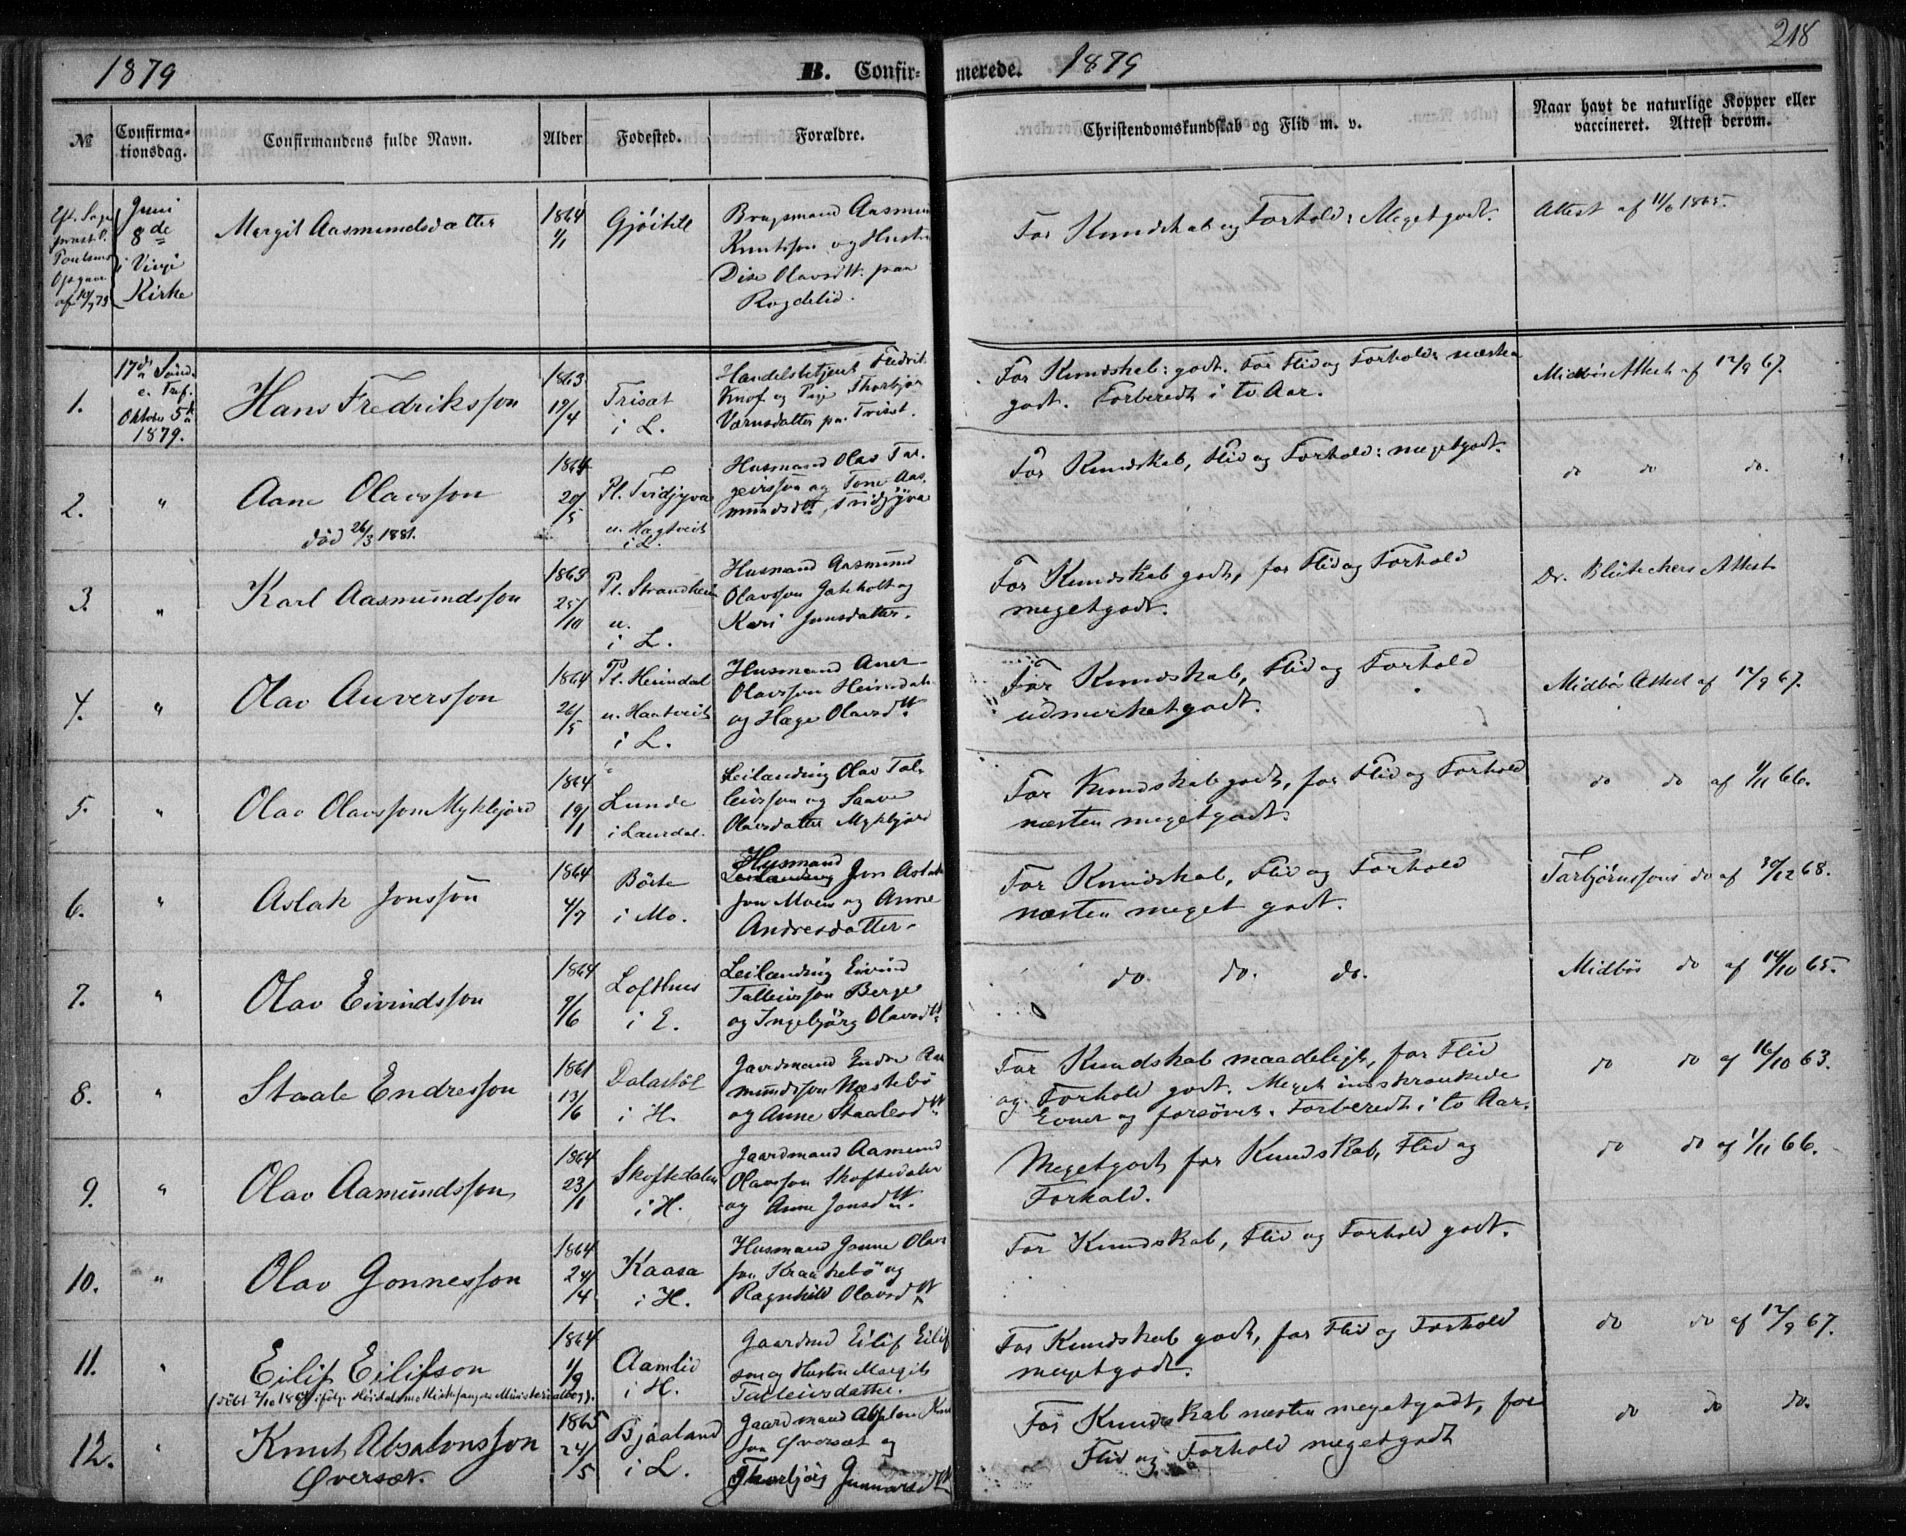 218
1879 B. Confir- merede. 1879
№ Confirma-tionsdag. Confirmandens fulde Navn. Alder Fødested. Forældre. Christendomskundskab og Flid m. v. Naar havt de naturlige Kopper eller vaccineret. Attest derom.
Eft. Sogneprest P. Poulsens Opgave af 10/9 79
Juni 8de i Vinje Kirke
Margit Aasmundsdatter
1864 1/1
Gjöitill
Brugsmand Aasmun
Knutsson og Hustru
Dise Olavsdtt. paa
Rogdelid.
For Kundskab og Forhold: Megetgodt.
Attest af 11/6 1865.
1.
17de Sönd. e. Tref. Oktober 5te 1879.
Hans Fredriksson
1863 19/4
Trisæt
i L.
Handelsbetjent Fredrik
Knof og Pige Thorbjör
Varnsdatter pa. Trisæt.
For Kundskab: godt. For Flid og Forhold: næsten
godt. Forberedt i to Aar.
Midbös Attest af 12/9 67.
2.
"
Aane Olavsson
död 26/3 1881.
1864 20/5
Pl. Tvidjyva
u. Hagtveit
i L.
Husmand Olav Tar-
geirsson og Tone Aas-
mundsdtt, Tvidjyva
For Kundskab, Flid og Forhold: megetgodt.
do do do.
3.
"
Karl Aasmundsson
1863 25/10
Pl. Strandheim
u.
i L.
Husmand Aasmund
Olavsson Gateholt og
Kari Jonsdatter.
For Kundskab godt, for Flid og Forhold
megetgodt.
Dr. Blütechers Attest
4.
"
Olav Auversson
1864 26/5
Pl. Heimdal
u. Haatveit
i L.
Husmand Auver
Olavsson Heimdal
og Hæge Olavsdtt.
For Kundskab, Flid og Forhold
udmerketgodt.
Midbös Attest af 12/9 67.
5.
"
Olav Olavsson Myklejord
1864 19/1
Lunde
i Laurdal.
Leilænding Olav Tal-
leivsson og Saave
Olavsdatter Myklejord
For Kundskab godt, for Flid og Forhold
næsten megetgodt.
do do af 1/11 66.
6.
"
Aslak Jonsson
1864 4/7
Böite
i Mo.
Husmand
Leilænding Jon Aslak
son Moen og Anne
Andresdatter.
For Kundskab, Flid og Forhold
næsten meget godt.
Tarbjørnssons do af 30/12 68.
7.
"
Olav Eivindsson
1864 9/6
Lofthus
i E.
Leilænding Eivind
Talleivsson Berge
og Ingebjörg Olavsdtt.
do. do. do.
Midbös do af 14/10 65.
8.
"
Staale Endresson
1861 13/6
Dalastöl
i H.
Gaardmand Endre Aa
mundsson Næstebö
og Anne Staalesdtt.
For Kundskab maadeligt, for Flid
og Forhold godt. Meget indskrænkede
Evner og forsömt. Forberedt i to Aar.
do do af 16/10 63.
9.
"
Olav Aamundsson
1864 23/1
Skoftedalen
i H.
Gaardmand Aamund
Olavsson Skoftedalen
og Anne Jonsdtt.
Megetgodt for Kundskab, Flid og
Forhold.
do do af 1/11 66.
10.
"
Olav Gonnesson
1864 24/4
Kaasa
i H.
Husmand Gonne Olav
son Kraakebö og
Ragnhild Olavsdtt
For Kundskab, Flid og Forhold godt.
11.
"
Eilif Eilifson
1864 1/9
Aamlid
i H.
Gaardmd Eilif Eilif
son og Hustru Margit
Talleivsdatter.
For Kundskab godt, for Flid og Forhold
megetgodt.
do do af 12/9 67.
12.
"
Knut Absalonsson
Øversæt.
1865 24/5
Bjaaland
i L.
Gaardmand Absalon Knu
son Øversæt og
Thorbjörg Gunnarsdtt
For Kundskab næsten megetgodt, for
Flid og Forhold megetgodt
do do do.